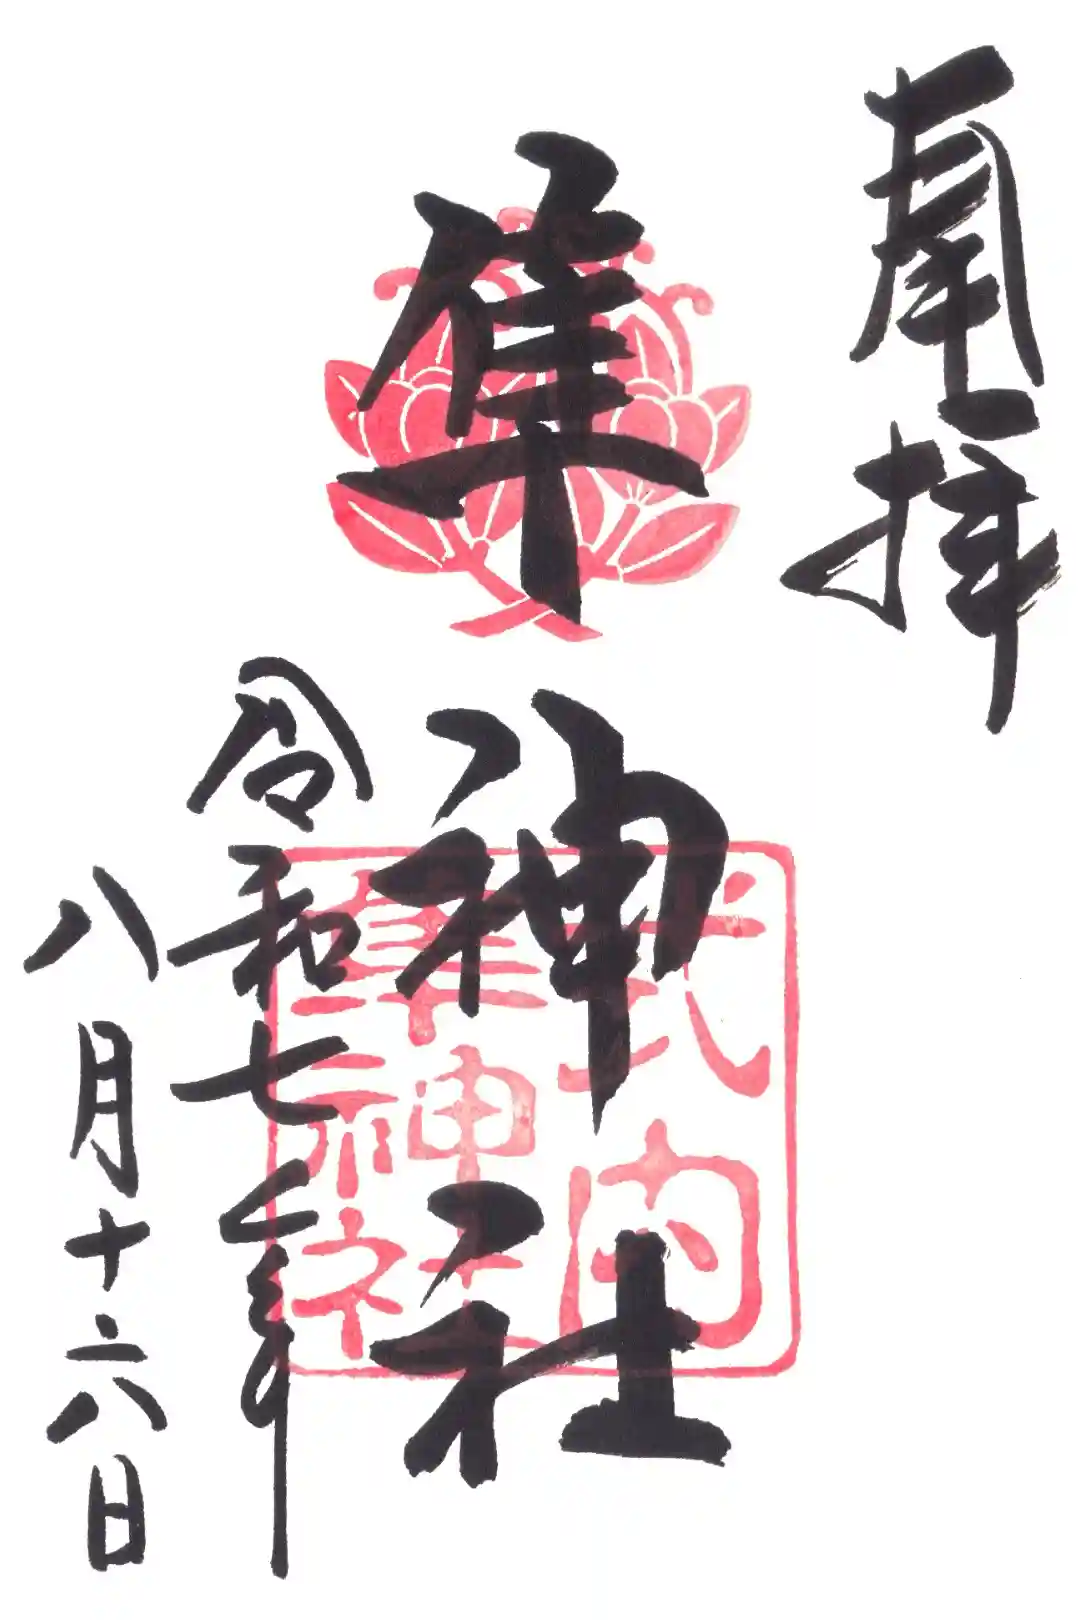 奉拝
隼神社
令和七年
八月十六日
式内
隼神社